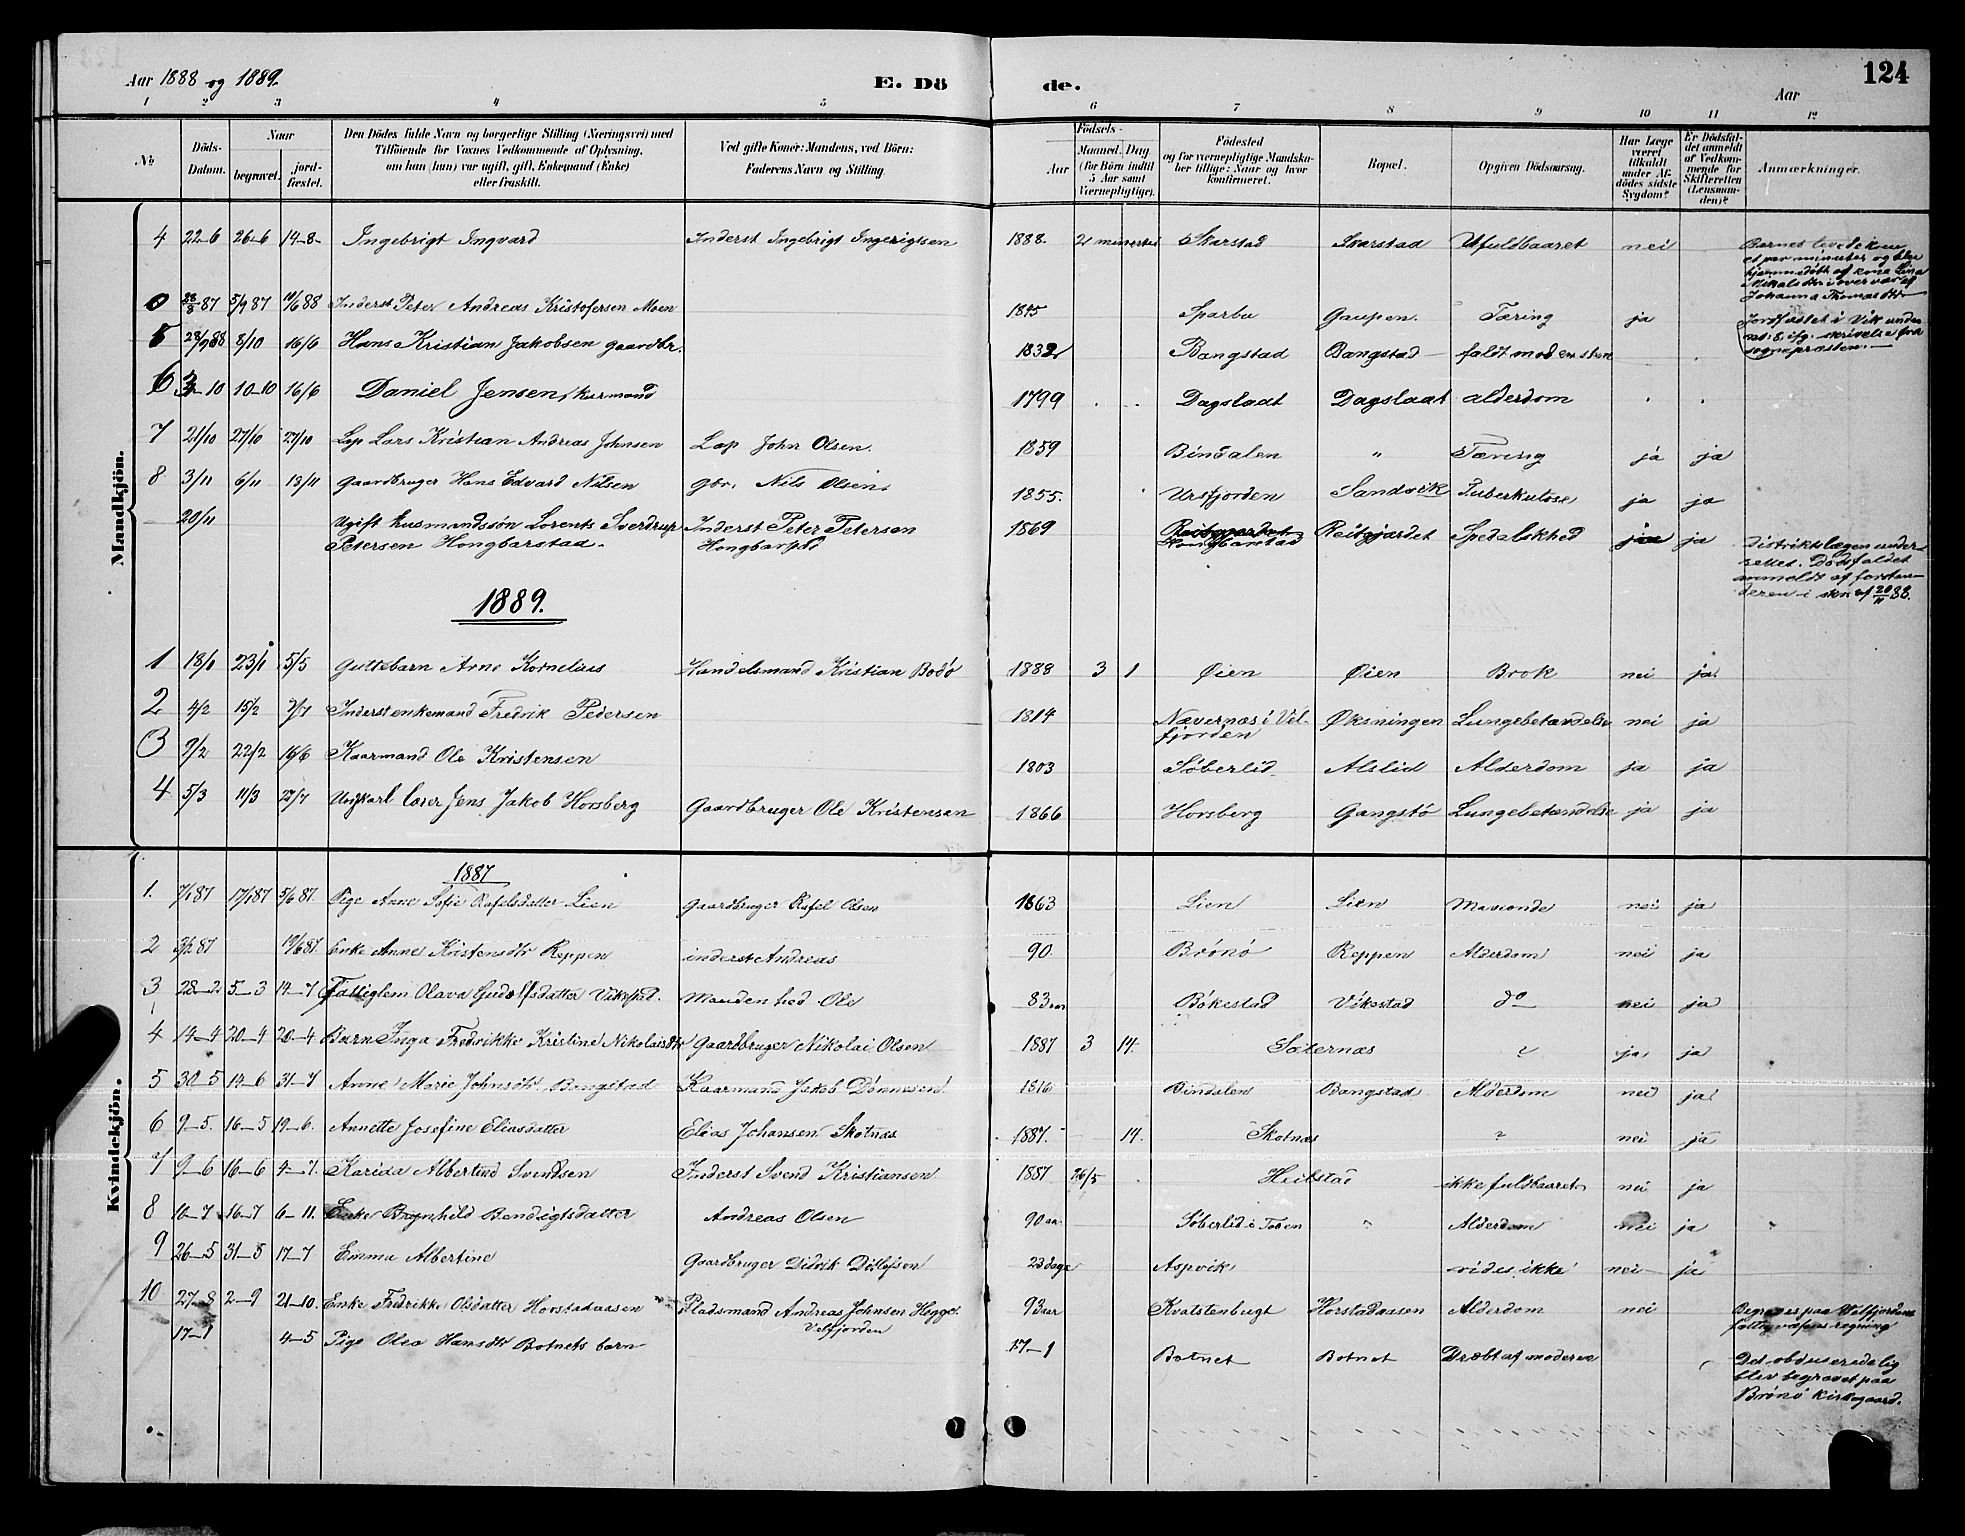 Aar 1888 og 1889.
E. Dö
de.
Aar
124
1 2 3 4 5 6 7 8 9 10 11 12
No
Döds-
Datum.
Naar
begravet.
jord-
fæstet.
Den Dödes fulde Navn og borgerlige Stilling (Næringsvei) med
Tilföiende for Voxnes Vedkommende af Oplysning,
om han (hun) var ugift, gift, Enkemand (Enke)
eller fraskilt.
Ved gifte Koner: Mandens, ved Börn:
Faderens Navn og Stilling.
Födsels-
Aar
Maaned. Dag
(for Börn indtil
5 Aar samt
Værnepligtige).
Födested
og for værnepligtige Mandska-
ber tillige: Naar og hvor
konfirmeret.
Bopæl.
Opgiven Dödsaarsag.
Har Læge
været
tilkaldt
under Af-
dödes sidste
Sygdom?
Er Dödsfal-
det anmeldt
af Vedkom-
mende for
Skifteretten
(Lensman-
den)?
Anmærkninger.
Mandkjön.
4 22-6 26-6 14-8- Ingebrigt Ingvard Inderst Ingebrigt Ingerigtsen 1888. Skarstad Skarstad Ufuldbaaret nei
et par minuter og blev
hjemmedöbt af kone Lina
Johanna Thomasdtr
0 28/8 87 5/9 87 10/6 88 Inderst Peter Andreas Kristofersen Moen 1875 Sparbu Gaupen. Tæring ja Jordfæstet i Vik under
no. 8 ifg. skrivelse fra
sognepræsten.
5 28/9 88 8/10 16/6 Hans Kristian Jakobsen gaardbr. 1832 Bangstad Bangstad faldt mod en sten
6 3-10 10-10 16/6 Daniel Jensen, kårmand 1799 Dagslaat Dagslaat alderdom
7 21/10 27/10 27/10 Lap Lars Kristian Andreas Johnsen Lap John Olsen. 1859 Bindalen " Tæring ja ja
8 3/11 6/11 13/11 Gaardbruger Hans Edvard Nilsen gbr. Nils Olsen 1855. Ursfjorden Sandvik Tuberkulose ja ja
20/11 Ugift husmandssön Lorents Sverdrup Inderst Peter Petersen 1869 Reitgjærdet Spedalskhed ja ja
Petersen Hongbarstad. Hongbarstad Hongbarstad
Distriktslægen under-
rettet. Dödsfaldet
anmeldt af forstan-
deren i skr. af 20/11 88.
1889.
1 18/1 23/1 5/5 Guttebarn Arne Kornelius Handelsmand Kristian Bodö 1888 3 1 Øien Øien Brok nei ja
2 4/2 15/2 7/7 Inderstenkemand Fredrik Pedersen 1814 Nævernæs i Vel- Øksningen Lungebetændelse nei ja
fjorden
3 9/2 22/2 16/6 Kaarmand Ole Kristensen 1803 Söberlid Alslid Alderdom ja ja
4 5/3 11/3 22/7 Ungkarl lærer Jens Jakob Horsberg Gaardbruger Ole Kristensen 1866 Horsberg Gangstö Lungebetændelse ja ja
Kvindekjön.
1887
1. 7/1 87 17/1 87 5/6 87. Pige Anne Sofie Rafelsdatter Lien Gaardbruger Rafel Olsen 1863 Lien Lien Mavonde nei ja
2 5/2 87 19/6 87. Enke Anne Kristensdtr Reppen inderst Andreas 90. Brönö Reppen Alderdom nei ja
3 28-2 5-3 14-7 Fattiglem Olava Gudolfsdatter Vikestad. Manden hed Ole 83 aar Bökestad Vikestad do nei ja
4 14-4 20-4 20-4 Barn Inga Fredrikke Kristine Nikolaisdtr Gaardbruger Nikolai Olsen 1887 3 14. Sæternæs ? ja ja
5 30-5 14-6 31-7 Anne Marie Johnsdtr Bangstad Kaarmand Jakob Dönnesen 1816 Bindalen Bangstad Alderdom nei ja
6 9-5. 16-5 19-6. Annette Josefine Eliasdatter Elias Johansen Skotnæs 1887. 14. Skotnæs ? nei ja
7 9-6 16-6 4-7. Karida Albertine Svendsen Inderst Svend Kristiansen 1887 26/5 Heilstad ikke fuldbaaret nei ja
8 10-7 16-7 6-11. Enke Brynhild Bendigtsdatter Andreas Olsen 90 aar Söberlid i Tosen " Alderdom nei ja
9 26-5 31-5 17-7 Emma Albertine Gaardbruger Didrik Ditlefsen 23 dage Aspvik vides ikke nei ja
10 27-8 2-9 21-10. Enke Fredrikke Olsdatter Horstadaasen Pladsmand Andreas Johnsen Hegge 93 aar Kvalstenbugt Horstadaasen Alderdom nei Begraves paa Velfjordens
Velfjorden
fattigvæsens regning
17-1 4-5 Pige Olea Hansdtr Botnets barn 17-1 Botnet Botnet Dræbt af moderen
blev begravet paa
Brönö kirkegaard.